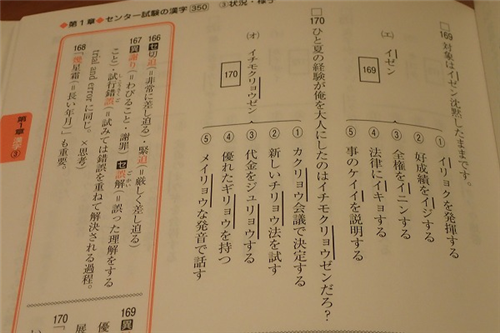 ◆第1章◆センター試験の漢字350
③状況・移
□169 対象はイゼン沈黙したままです。
(エ) イゼン
169
① イリョクを発揮する
② 好成績をイジする
③ 全権をイニンする
④ 法律にイキョする
⑤ 事のケイイを説明する
□170 ひと夏の経験が俺を大人にしたのはイチモクリョウゼンだろ?
(オ) イチモクリョウゼン
170
① カクリョウ会議で決定する
② 新しいチリョウ法を試す
③ 代金をジュリョウする
④ 優れたギリョウを持つ
⑤ メイリョウな発音で話す
166 セ切迫(=非常に差し迫る)・緊迫(=厳しく差し迫る)
167 異謝り(=わびること、謝罪) セ誤解(=誤った理解をする
こと)・試行錯誤(=試みては錯誤を重ねて解決される過程。
trial and errorに同じ。×思考)
168 「幾星霜(=長い年月)」も重要。
第1章
③
169 異
優
170 「
展